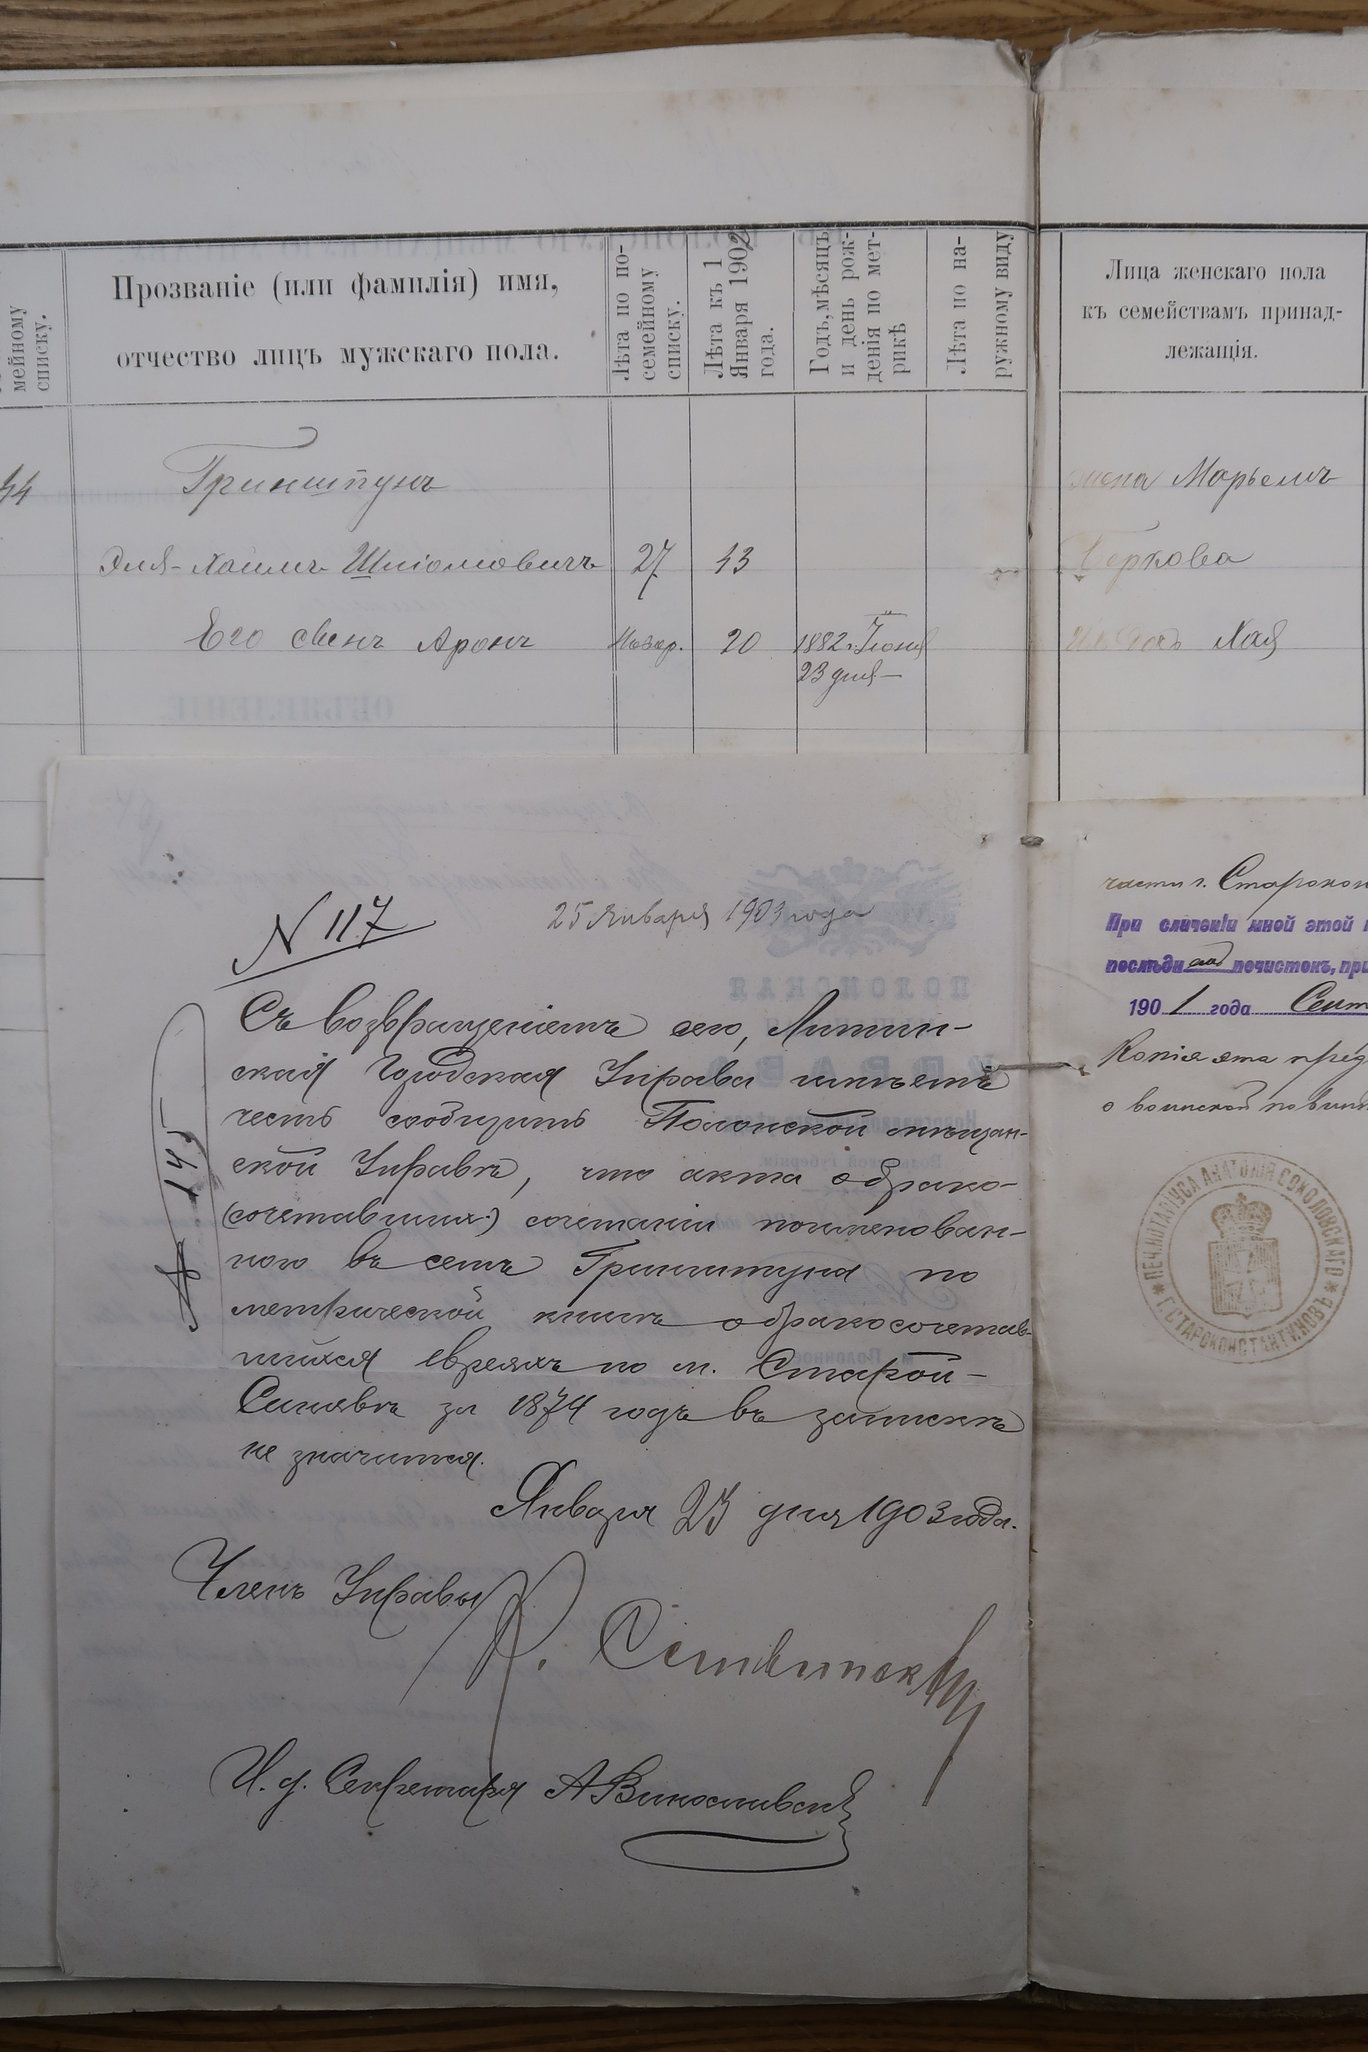 мейному
списку.
Прозваніе (или фамилія) имя,
отчество лицъ мужскаго пола.
Лѣта по по-
семейному
списку.
Лѣта къ 1
Января 1902
года.
Годъ, мѣсяцъ
и день рож-
денія по мет-
рикѣ
Лѣта по на-
ружному виду
Лица женскаго пола
къ семействамъ принад-
лежащія.
44
Гринштунъ
жена Марьемъ
Эля-Хаимъ Шліомовичъ 27 43
Беркова
Его сынъ Аронъ Новор. 20 1882 г. Іюня
23 дня
Хая
N 117
25 Января 1903 года
Съ возвращеніемъ сего, Литин-
ская Городская Управа имѣетъ
честь сообщить Полонской мѣщан-
ской Управѣ, что акта о брако-
(сочетавших.) сочетаніи поименован-
ного въ семъ Гринштуна по
метрической книгѣ о бракосочетав-
шихся евреяхъ по м. Старой-
Синявѣ за 1874 годъ въ запискѣ
не значится.
Января 23 дня 1903 года.
Членъ Управы
И. д. Секретаря А
№ 145
ПОЛОНСКАЯ
УПРАВА
части г. Старокон
При сличеніи мной этой
послѣдн ей почистокъ, при
190 1 года Сент
Копія эта пред
о воинской повинн
ПЕЧ. НОТАРІУСА АНАТОЛІЯ СОКОЛОВСКАГО
Г. СТАРОКОНСТАНТИНОВЪ